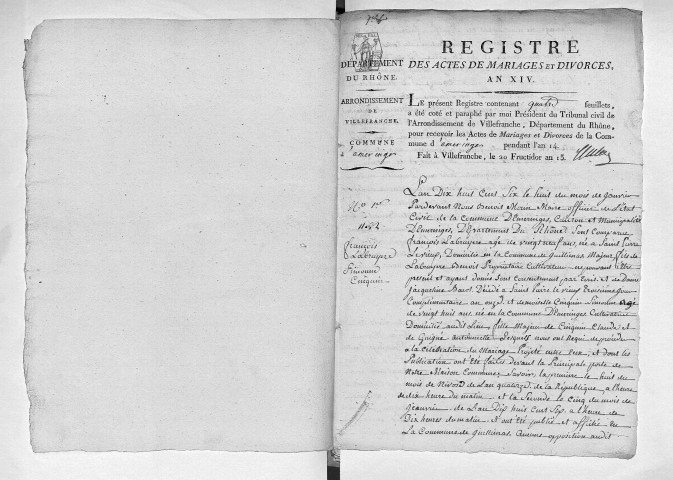 REGISTRE
DÉPARTEMENT
DU RHÔNE.
DES ACTES DE MARIAGES ET DIVORCES,
AN XIV.
ARRONDISSEMENT
DE
VILLEFRANCHE.
COMMUNE
d'emeringe
LE présent Registre contenant quatre feuillets,
a été coté et paraphé par moi Président du Tribunal civil de
l'Arrondissement de Villefranche, Département du Rhône,
pour recevoir les Actes de Mariages et Divorces de la Com-
mune d'emeringe pendant l'an 14.
Fait à Villefranche, le 20 Fructidor an 13.
No 1er
François
Labruyere
Cinquin
Lan Dix huit Cent Six le huit du mois de Janvier
Pardevant Nous Benoit Maire officier de l'état
Civil de la Commune D'Emeringes, Canton et Municipalité
D'Emeringes, Département Du Rhône, Sont Comparus
françois Labruyere agé de vingt neuf ans, né a Saint
Le vieux, Domicilié en la Commune de Majeur, fils de
Labruyere Benoit Propriétaire Cultivateur ne pouvant Etre
présent et ayant donné Son Consentement par Ecrit, et de Dame
Jacqueline Décédé a Saint le vieux troisieme Jour
Complementaire an onze, et demoiselle Cinquin agé
de vingt huit ans, né en la Commune D'Emeringes Cultivateur
Domicilié audit Lieu, fille Majeur de Cinquin Claude et
de antoinette Lesquels nous ont Requi de procéder
a la Célébration du Mariage Projeté entre Eux, et dont les
Publication ont été faites devant la Principale porte de
Notre Maison Commune; Savoir, la premiere le huit du
mois de Nivose de Lan quatorze de la République a lheure
de dix heure du matin, et la Seconde le Cinq du mois de
Janvier de Lan Dix huit Cent Six a lheure de
Dix heures du matin, et ont été publié et affiché en
La Commune de Aucune opposition audit